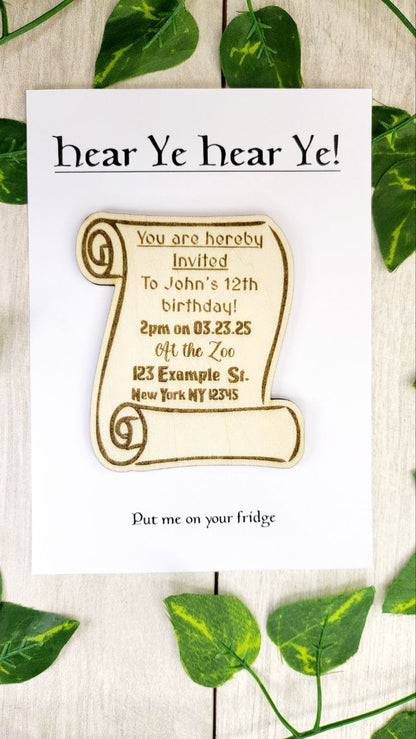 Hear Ye Hear Ye!
You are hereby
Invited
To John's 12th
birthday!
2pm on 03.23.25
At the Zoo
123 Example St.
New York NY 12345
Put me on your fridge